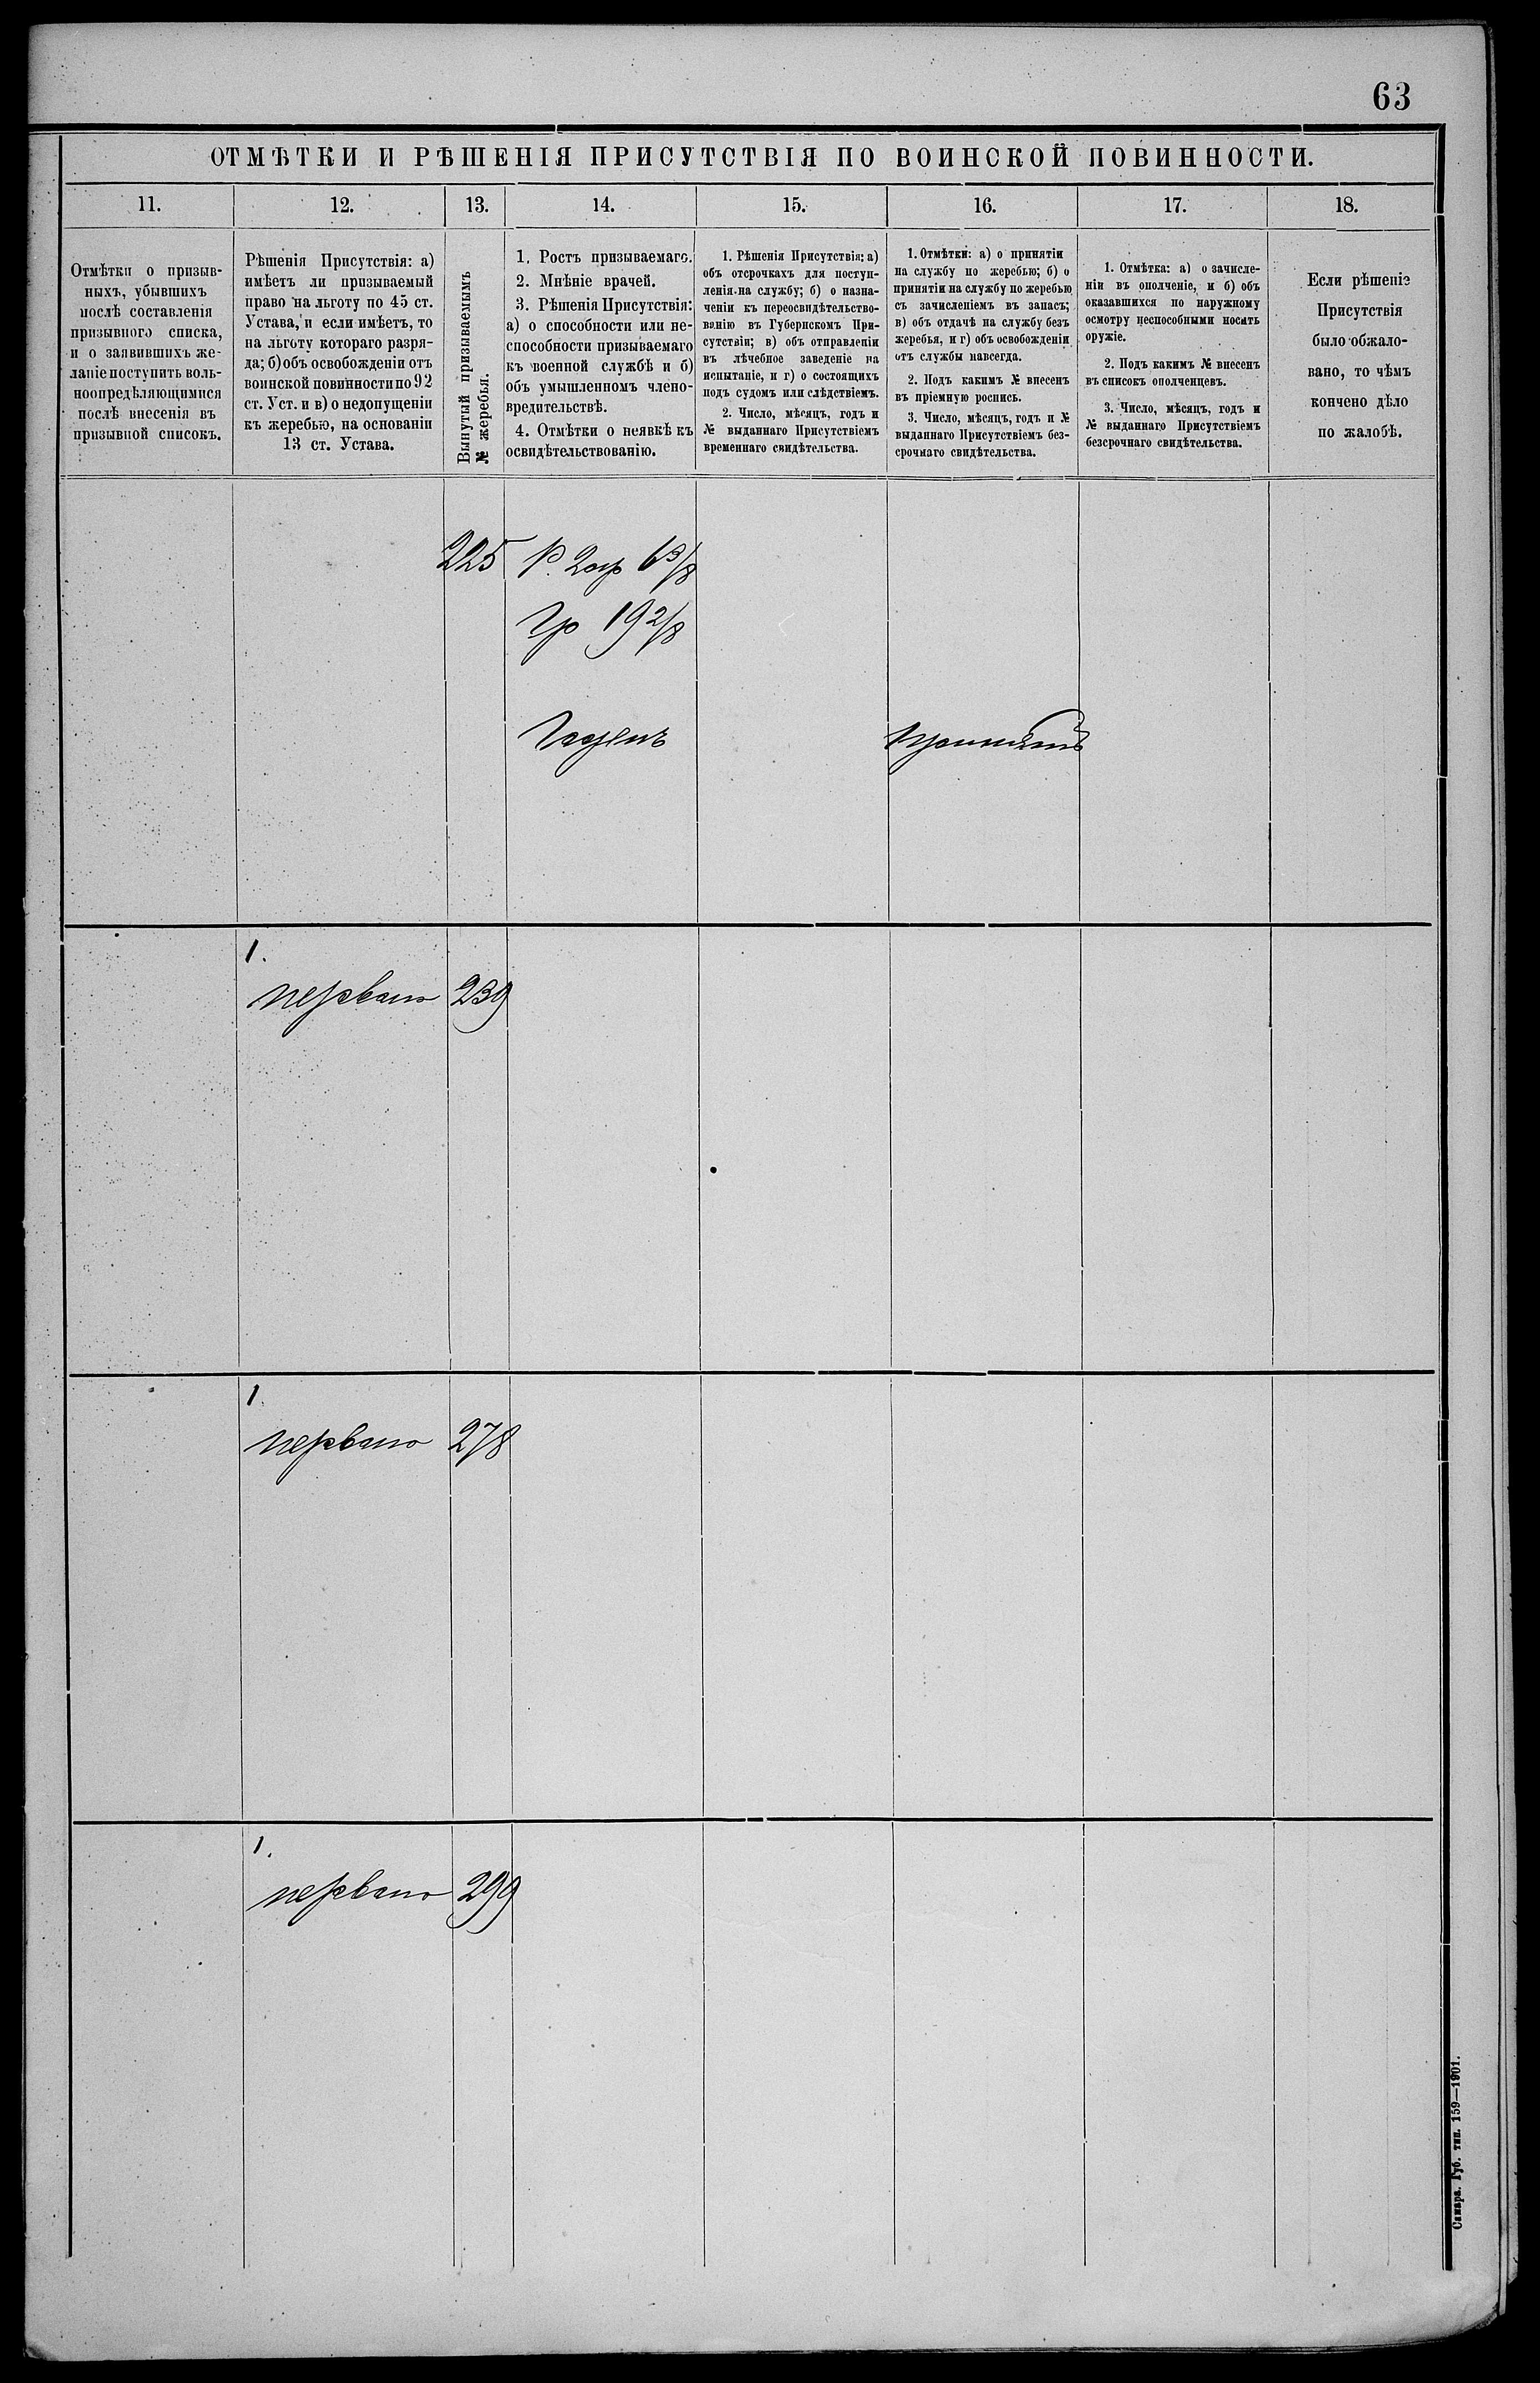 63
ОТМѢТКИ И РѢШЕНІЯ ПРИСУТСТВІЯ ПО ВОИНСКОЙ ПОВИННОСТИ.
11.
12.
13.
14.
15.
16.
17.
18.
Отмѣтки о призыв-
ныхъ, убывшихъ
послѣ составленія
призывного списка,
и о заявившихъ же-
ланіе поступить воль-
ноопредѣляющимися
послѣ внесенія въ
призывной списокъ.
Рѣшенія Присутствія: а)
имѣетъ ли призываемый
право на льготу по 45 ст.
Устава, и если имѣетъ, то
на льготу котораго разря-
да; б) объ освобожденіи отъ
воинской повинности по 92
ст. Уст. и в) о недопущеніи
къ жеребью, на основаніи
13 ст. Устава.
Вынутый призываемымъ
№ жеребья.
1. Ростъ призываемаго.
2. Мнѣніе врачей.
3. Рѣшенія Присутствія:
а) о способности или не-
способности призываемаго
къ военной службѣ и б)
объ умышленномъ члено-
вредительствѣ.
4. Отмѣтки о неявкѣ къ
освидѣтельствованію.
1. Рѣшенія Присутствія: а)
объ отсрочкахъ для поступ-
ленія на службу; б) о назна-
ченіи къ переосвидѣтельство-
ванію въ Губернскомъ При-
сутствіи; в) объ отправленіи
въ лѣчебное заведеніе на
испытаніе, и г) о состоящихъ
подъ судомъ или слѣдствіемъ.
2. Число, мѣсяцъ, годъ и
№ выданнаго Присутствіемъ
временнаго свидѣтельства.
1. Отмѣтки: а) о принятіи
на службу по жеребью; б) о
принятіи на службу по жеребью
съ зачисленіемъ въ запасъ;
в) объ отдачѣ на службу безъ
жеребья, и г) объ освобожденіи
отъ службы навсегда.
2. Подъ какимъ № внесенъ
въ пріемную роспись.
3. Число, мѣсяцъ, годъ и №
выданнаго Присутствіемъ без-
срочнаго свидѣтельства.
1. Отмѣтка: а) о зачисле-
ніи въ ополченіе, и б) объ
оказавшихся по наружному
осмотру неспособными носить
оружіе.
2. Подъ какимъ № внесенъ
въ списокъ ополченцевъ.
3. Число, мѣсяцъ, годъ и
№ выданнаго Присутствіемъ
безсрочнаго свидѣтельства.
Если рѣшеніе
Присутствія
было обжало-
вано, то чѣмъ
кончено дѣло
по жалобѣ.
225 Р. 2 ар 6 3/8
Гр 19 2/8
Годенъ принятъ
1.
перваго 239
1.
перваго 278
1.
перваго 299
Самара. Губ. тип. 159—1901.